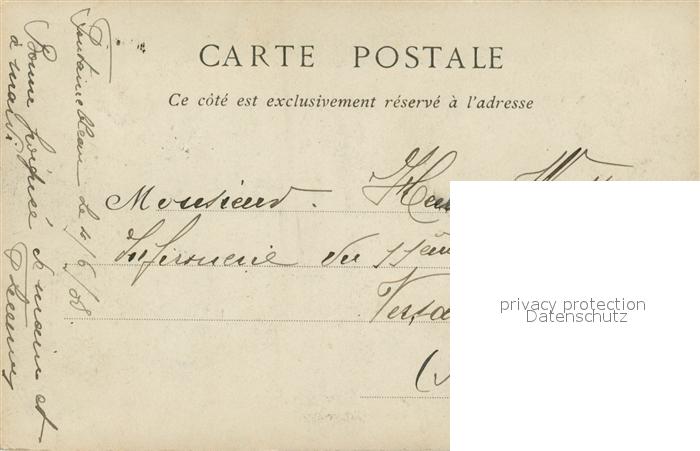 CARTE POSTALE
Ce côté est exclusivement réservé à l'adresse
Monsieur. 
Infirmerie du 11ème
Versa
Fontainebleau Le 4/6/08
Bonne poignée de main et
à mardi
privacy protection
Datenschutz